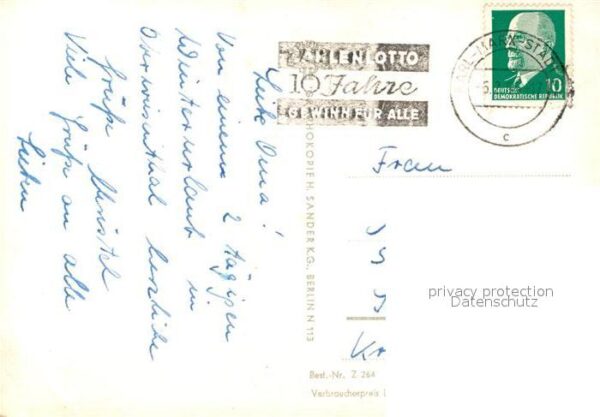 Liebe Oma!
Von einem 2 tägigen
Winterurlaub in
Oberwiesenthal herzliche
Grüße Christel
Viele Grüße an alle
ZAHLENLOTTO
10 Jahre
GEWINN FÜR ALLE
KARL-MARX-STADT
c
DEUTSCHE
DEMOKRATISCHE REPUBLIK
10
Frau
privacy protection
Datenschutz
H. SANDER K.G., BERLIN N 113
Best.-Nr. Z 264
Verbraucherpreis